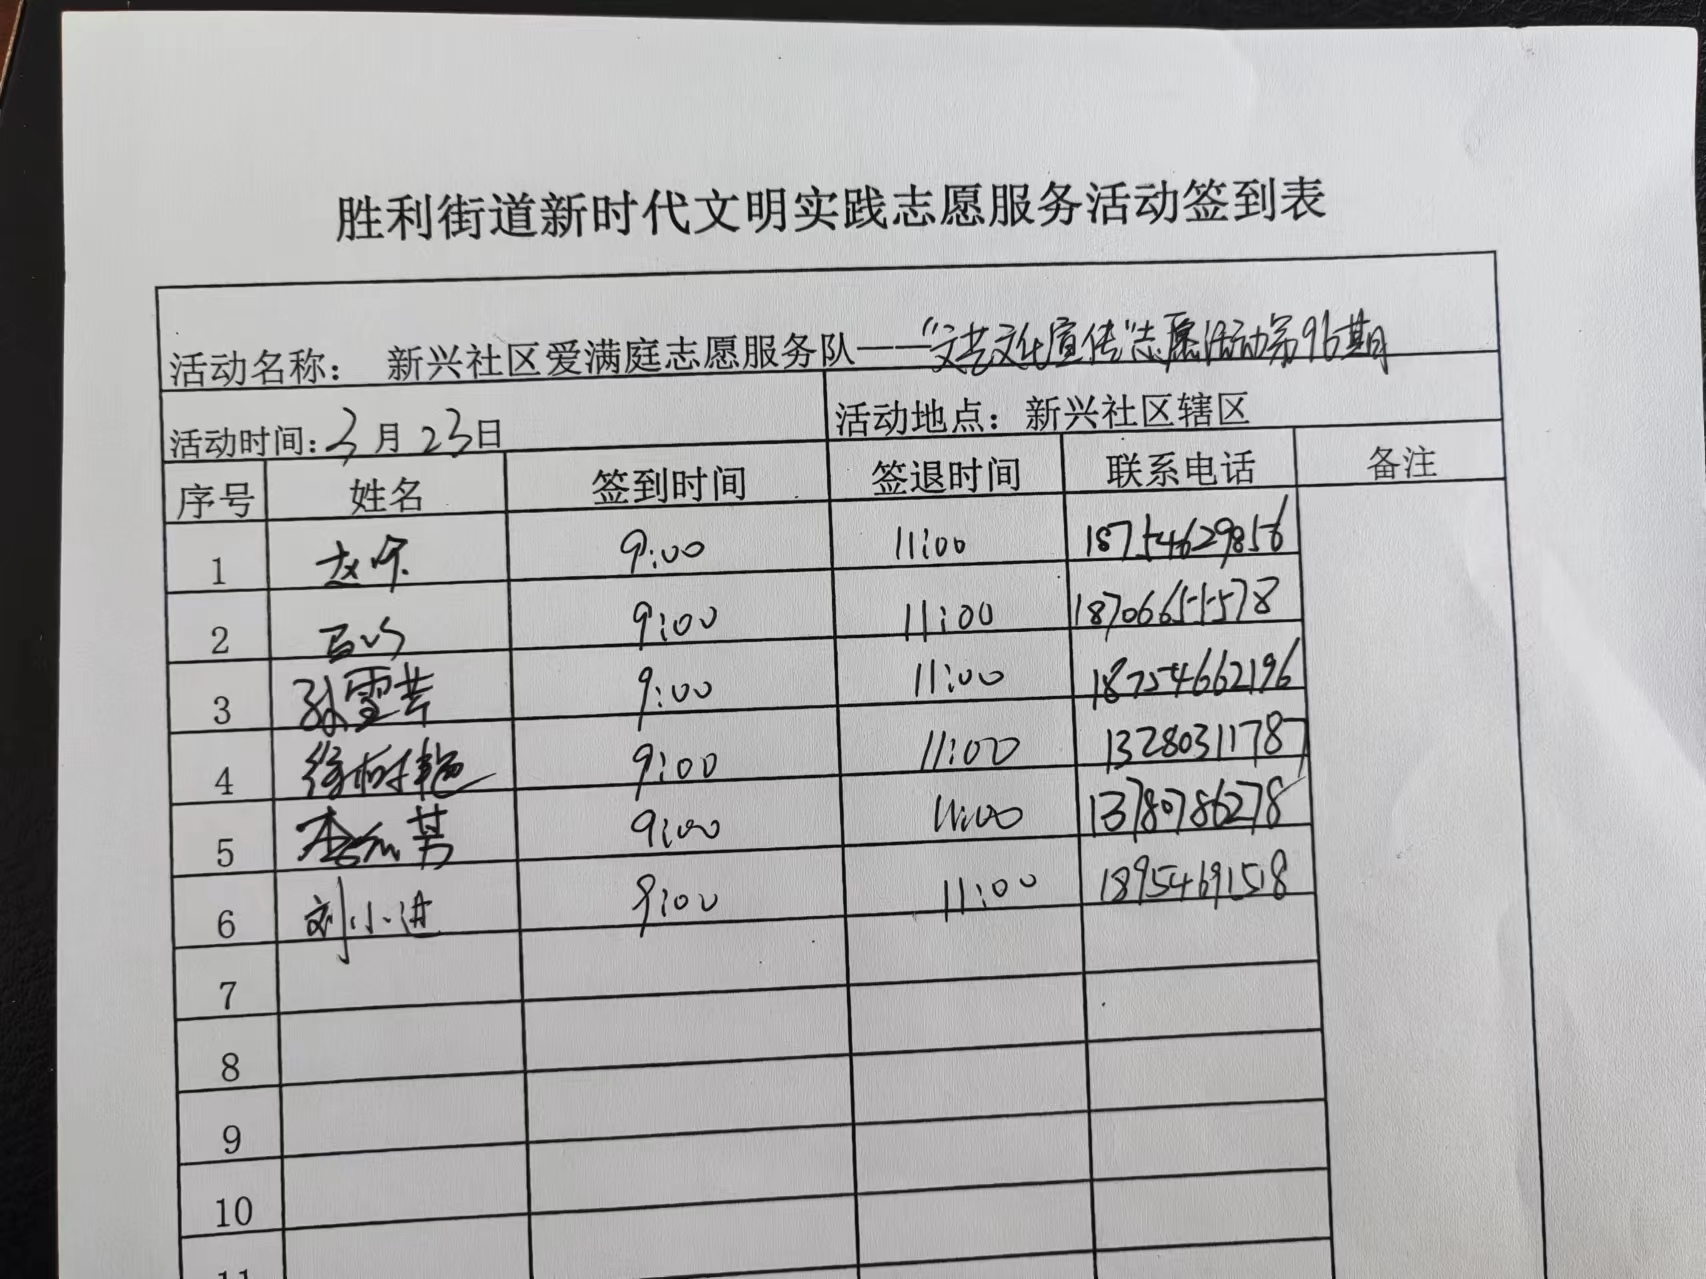 胜利街道新时代文明实践志愿服务活动签到表
活动名称： 新兴社区爱满庭志愿服务队——“文艺文化宣传”志愿活动第96期
活动时间：3月23日 活动地点：新兴社区辖区
序号 姓名 签到时间 签退时间 联系电话 备注
1 9:00 11:00 18754629856
2 9:00 11:00 18706651578
3 孙雪芸 9:00 11:00 18754662196
4 徐树艳 9:00 11:00 13280311787
5 9:00 11:00 13780786278
6 刘小进 9:00 11:00 18954691518
7
8
9
10
11